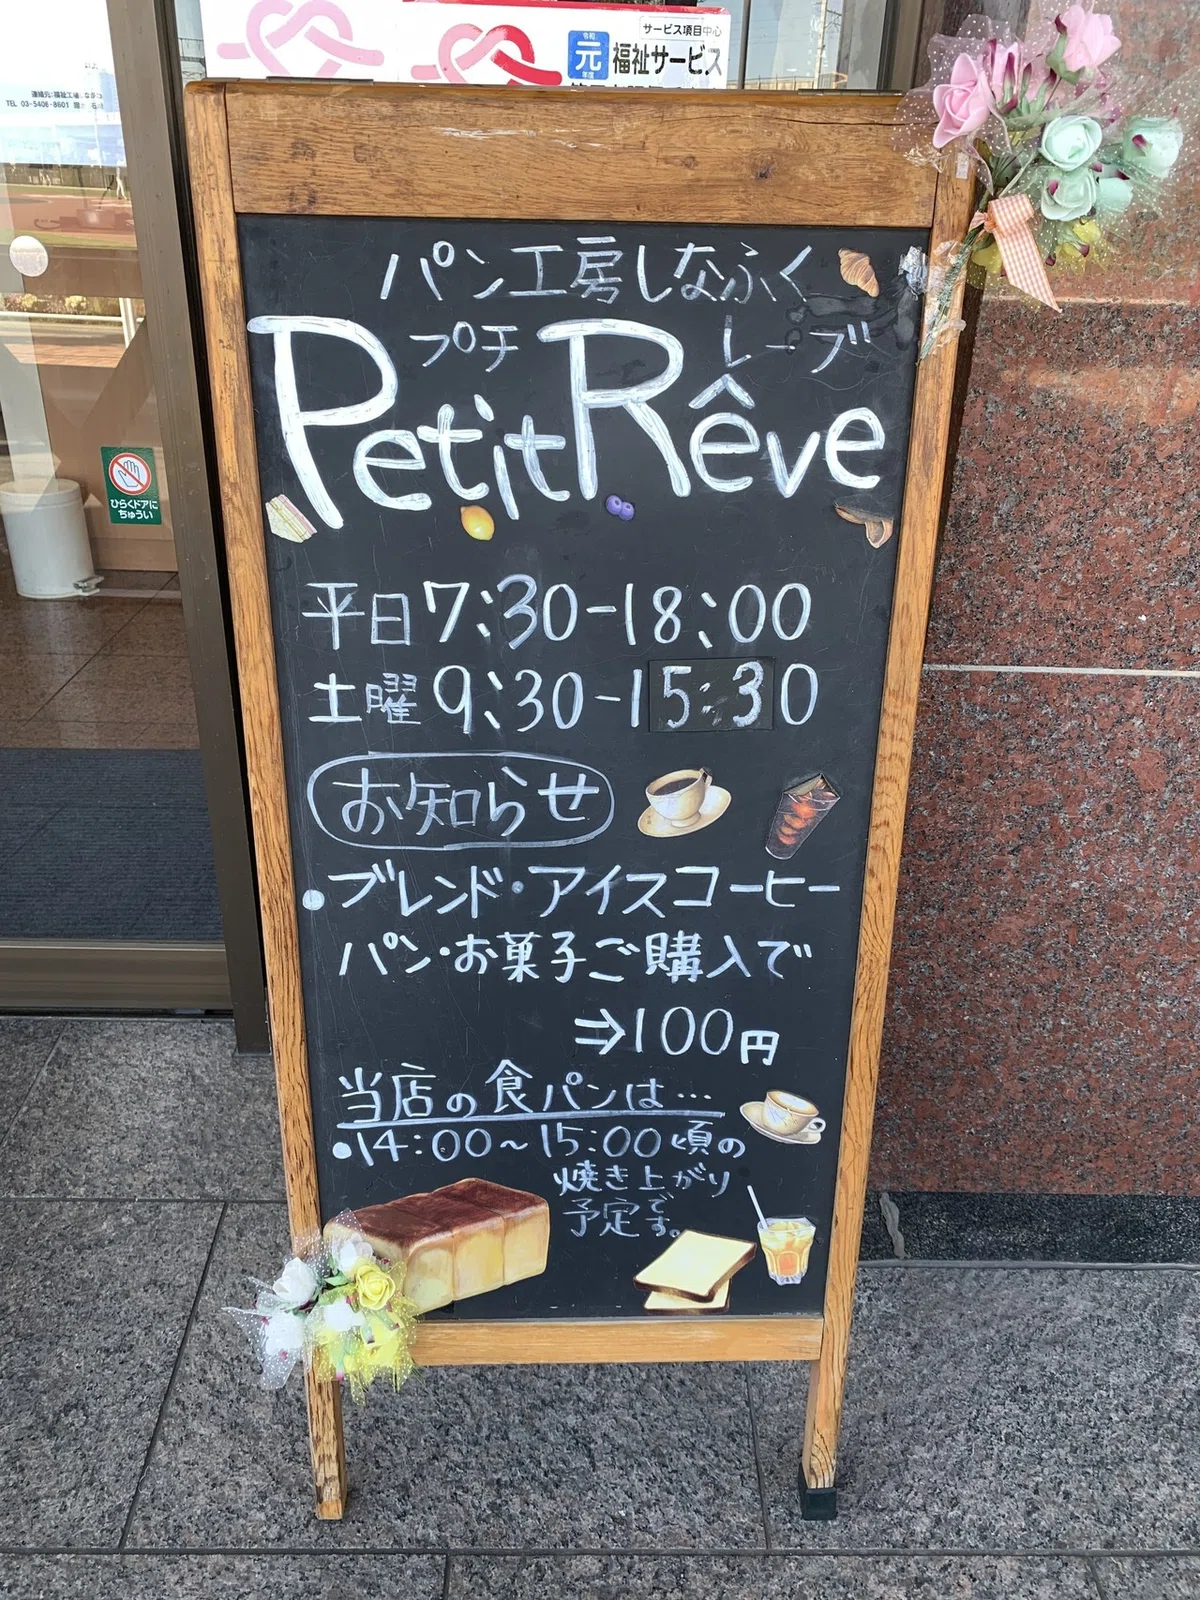 サービス項目中心
令和
元
年度
福祉サービス
TEL 03-5406-8601
ひらくドアに
ちゅうい
パン工房しなふく
プチ レーブ
Petit Rêve
平日 7:30-18:00
土曜 9:30-15:30
お知らせ
・ブレンド・アイスコーヒー
パン・お菓子ご購入で
⇒100円
当店の食パンは…
・14:00~15:00頃の
焼き上がり
予定です。